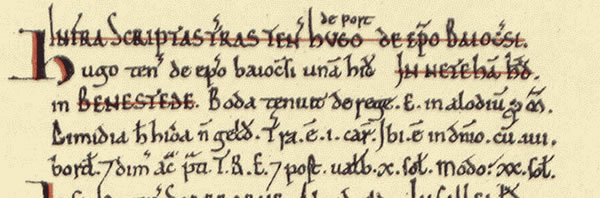 de port
INFRA SCRIPTAS T'RAS TEN' HVGO DE EP̃O BAIOCSI.
Hugo ten' de ep̃o baiocsi unā hid̄ IN NETEHĀ HD̄.
in BENESTEDE. Boda tenuit de rege. E. in alodiū p̱ m̄.
Dimidia h̄ hida ñ geld'. T'ra. ē. i. car'. Ibi. ē in dñio. cū. iiii.
bord'. 7 dim' ac̄ p̃ti. T. R. E. 7 post. ualb̄ x. sol'. modo. xx. sol'.